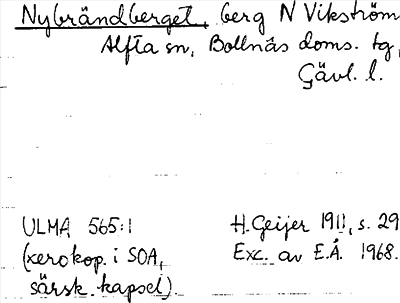 Nybrändberget, berg N Vikström
Alfta sn, Bollnäs doms. tg,
Gävl. l.
ULMA 565:1
(xerokop. i SOA,
särsk. kapsel).
H. Geijer 1911, s. 29
Exc. av E.Å. 1968.